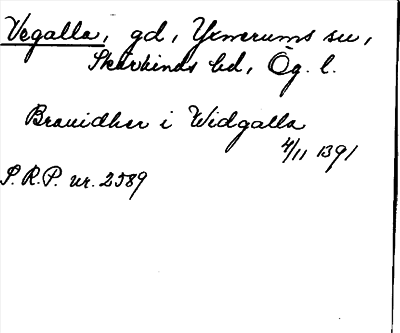 Vegalla, gd, Yxnerums sn,
Skärkinds hd, Ög. l.
Brauidher i Widgalla
4/11 1391
S.R.P. nr. 2589